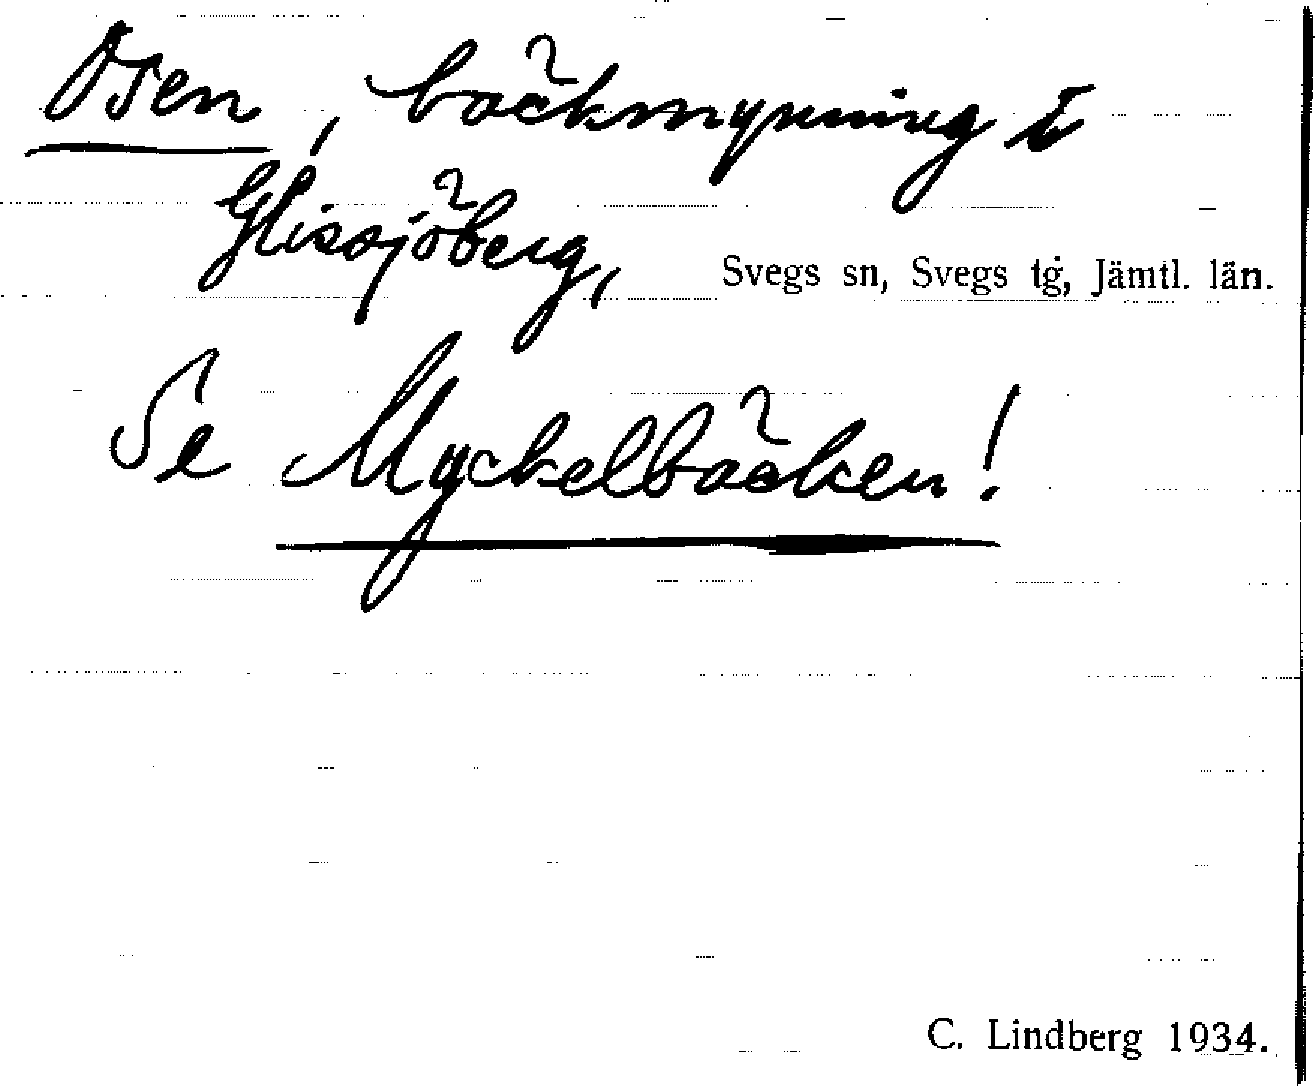 Osen, bäckmynning i
Glissjöberg, Svegs sn, Svegs tg, Jämtl. län.
Se Myckelbäcken!
C. Lindberg 1934.